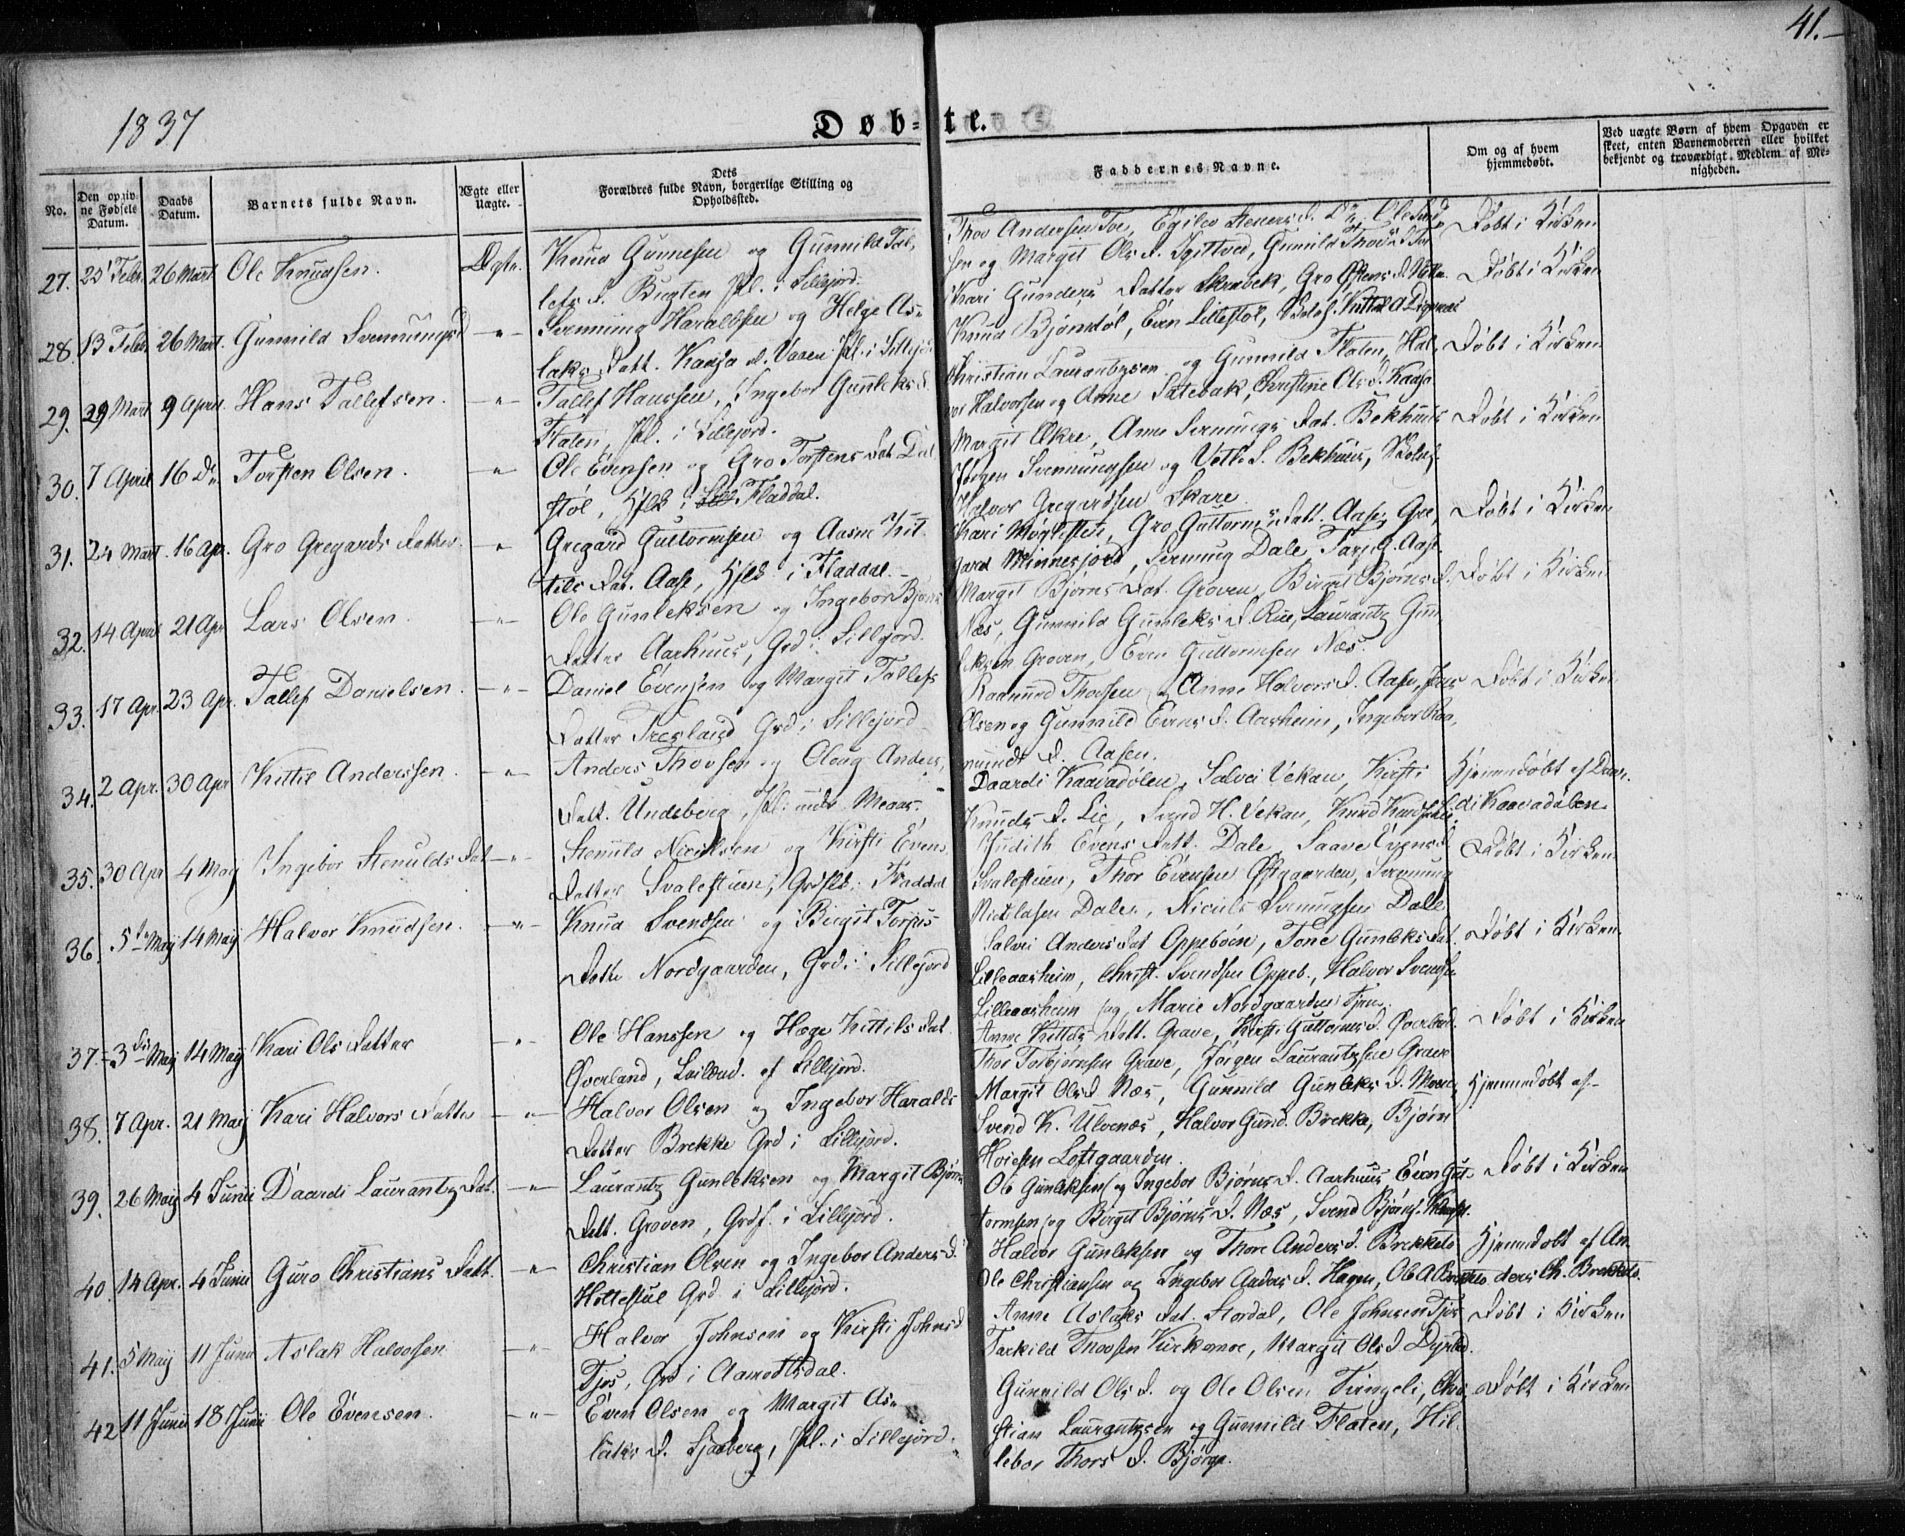 41.
1837
Døb-te.
No.
Den opgiv-
ne Fødsels
Datum.
Daabs
Datum.
Barnets fulde Navn.
Ægte eller
Uægte.
Dets
Forældres fulde Navn, borgerlige Stilling og
Opholdssted.
Faddernes Navne.
Om og af hvem
hjemmedøbt.
Ved uægte Børn af hvem Opgaven er
skeet, enten Barnemoderen eller hvilket
bekjendt og troværdigt Medlem af Me-
nigheden.
27. 25 Febr. 26 Mart Ole Knudsen. Ægte. Knud Gunnesen og Gunnild Tol-
lefs D. Bugten Pl. i Sillejord.
Thov Andersen Toe, Egilev D. Ole
sen og Margit Ols D. Gunnild Thovs D.
Døbt i Kirken
28. 13 Febr. 26 Mart. Gunnild Svennungsd -"- Svennung Haraldsen og Helge As-
laks Datt. Kaasa al. Varen Pl. i Sillejor
Kari Gunders Datter Skrabek, Gro D.
Knud Bjørndøl, Even Lillestøl,
Døbt i Kirken
29. 29 Mart 9 April Hans Tallefsen. -"- Tallef Hanssen, Ingebor Gunleks D.
Flaten, Pl. i Sillejord.
Christian Laurantzsen og Gunnild Flaten, Hal-
vor Halvorsen og Anne Satebak, Christine Ols D. Kaasa
Døbt i Kirken
30. 7 April 16 Do Torsten Olsen. -"- Ole Evensen og Gro Torstens Dat. Dal
støl, Hsld i Fladdal.
Margit Økre, Anne Svennungs Dat. Bekhuus
Jørgen Svennungsen og Vetle S. Bekhuus,
Halvor Gregardsen Skare
Døbt i Kirken
31. 24 Mart. 16 Ap. Gro Gregards Datter " Gregard Guttormsen og Aasne Kit-
tels Dat. Aase, Hsld i Fladdal.
Kari Gro Guttorms Datt. Aase, Gre-
gard Minnesjord, Svennung Dale, Tarj. G. Aase
Døbt i Kirken
32. 14 April 21 Apr Lars Olsen. -"- Ole Gunleksen og Ingebor Bjørns
Datter Aarhuus, Grd. i Sillejord.
Margit Bjørns Dat. Groven, Birgit Bjørns D.
Næs, Gunnild Gunleks D. Rue, Laurantz Gun-
leksen Groven, Even Guttormsen Næs.
Døbt i Kirken
33. 17 Apr. 23 Apr. Tallef Danielsen. -"- Daniel Evensen og Margit Tallefs
Datter Tresland Grd i Sillejord
Raamund Thovsen og Anne Halvors D. Aase,
Olsen og Gunnild Evens D. Aarheim, Ingebor Raa-
munds D. Aasen.
Døbt i Kirken
34. 2 Apr. 30 Apr Kittil Anderssen. -"- Anders Thovsen og Oloug Anders
Datt. Undeberg, Pl. unde Meaas.
Daardi Kaavadølen, Salvei Vekan, Kirsti
Knuds D. Lie, Svend H. Vekan, Knud
Hjemmedøbt af Daar-
di Kaavadølen.
35. 30 Apr 4 May Ingebor Stenulds Dat -"- Stenuld Nicilsen og Kirsti Evens
Datter Svalestuen, Grdsld. Fladdal
Judith Evens Datt. Dale, Saave Evens D.
Svalestuen, Thor Evensen Østgaarden, Svennung
Nicilsen Dale, Niciels Svenungsen Dale
Døbt i Kirken
36. 5te May 14 May Halvor Knudsen. -"- Knud Svendsen og Birgit Torjus
Datter Nordgaarden, Grd. i Sillejord
Salvei Anders Dat Oppebøen, Tone Gunleks Dat.
Lilleaarheim, Christ. Svendsen Oppeb., Halvor Svendsen
Lilleaarheim og Marie Nordgaarden Tjen.
Døbt i Kirken
37. 3die May 14 May Kari Ols Datter -"- Ole Hanssen og Hæge Kittils Dat
Øverland, af Sillejord.
Anne Kittils Datt. Grave, Kirsti Guttorms D. Øverland.
Thor Torbjørnsen Grave, Jørgen Laurantzsen Graver
Døbt i Kirken
38. 7 Apr. 21 May Kari Halvors Datter -"- Halvor Olsen og Ingebor Haralds
Datter Brekke Grd i Sillejord.
Margit Ols D Næs, Gunnild Gunleks D. Moen,
Svend K. Ulvenæs, Halvor Gund. Brekke, Bjørn
Loftgaarden
Hjemmedøbt af-
39. 26 May 4 Junii Daardi Laurantz Dat. -"- Laurantz Gunleksen og Margit Bjørns
Datt. Groven, Grdf. i Sillejord.
Ole Gunleksen og Ingebor Bjørns D. Aarhuus Even Gut-
tormsen og Birgit Bjørns D. Næs, Svend Bjørns.
Døbt i Kirken
40. 14 Apr. 4 Junii Guro Christians Datt. -"- Christian Olsen og Ingebor Anders D.
Hottestul Grd i Sillejord.
Halvor Gunleksen og Thore Anders D. Brekketo
Ole Christiansen og Ingebor Anders D. Hagen, Ole A Brekketo
Hjemmedøbt af An-
ders Ch. Brekketo.
41. 5 May 11 Junii Aslak Halvorsen -"- Halvor Johnsen og Kirsti Johns D
Tjos, Grd i Aamotsdal.
Anne Aslaks Dat. Stordal, Ole Johnsen Tjos
Tarkild Thovsen Kirkemoe, Margit Ols D
Døbt i Kirken
42 11 Junii 18 Junii Ole Evensen. -"- Even Olsen og Margit As-
laks D. Sjaaberg, Pl. i Sillejord.
Gunnild Ols D. og Ole Olsen Tinngeli, Chri-
stian Laurantzsen og Gunnild Flaten, Hil-
lebor Thors D. Bjørge.
Døbt i Kirken